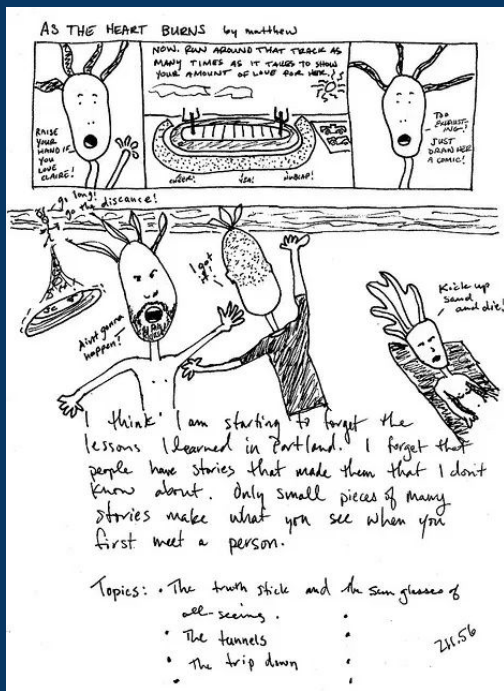 AS THE HEART BURNS by matthew
RAISE
YOUR
HAND IF
YOU
LOVE
CLAIRE!
NOW, RUN AROUND THAT TRACK AS
MANY TIMES AS IT TAKES TO SHOW
YOUR AMOUNT OF LOVE FOR HER!
CHEER!
YEA!
TOO
EXHAUST-
ING!
JUST
DRAW HER
A COMIC!
go long!
go the distance!
Ain't gonna
happen!
I got
it!
Kick up
sand
and die!
I think I am starting to forget the
lessons I learned in Portland. I forget that
people have stories that made them that I don't
know about. Only small pieces of many
stories make what you see when you
first meet a person.
Topics: • The truth stick and the sunglasses of
all-seeing.
• The tunnels
• The trip down